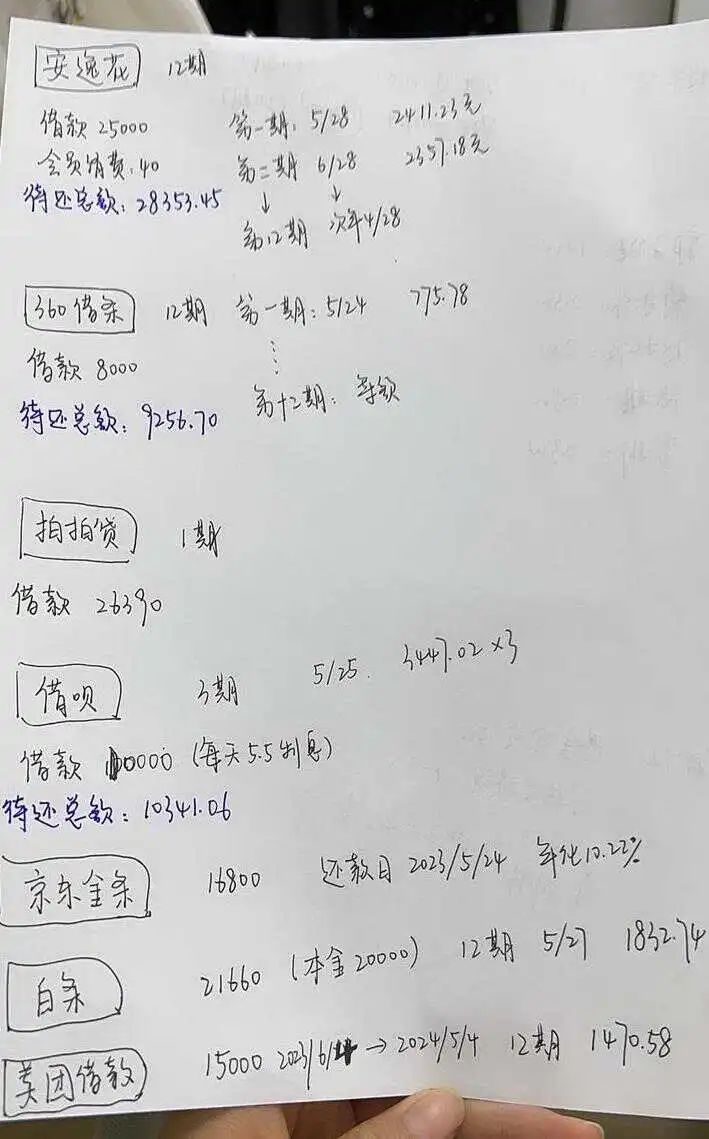 安逸花 12期
借款 25000 第一期: 5/28 2411.23元
会员消费: 40 第二期 6/28 2357.18元
待还总款: 28353.45 ↓ ↓
第12期 次年4/28
360借条 12期 第一期: 5/24 775.78
借款 8000
待还总额: 9256.70 第十二期: 等额
拍拍贷 1期
借款 26390
借呗 3期 5/25. 3447.02 ×3
借款 10000 (每天5.5利息)
待还总额: 10341.06
京东金条 16800 还款日 2023/5/24 年化10.22%
白条 21660 (本金20000) 12期 5/27 1832.74
美团借款 15000 2023/6/4 → 2024/5/4 12期 1470.58